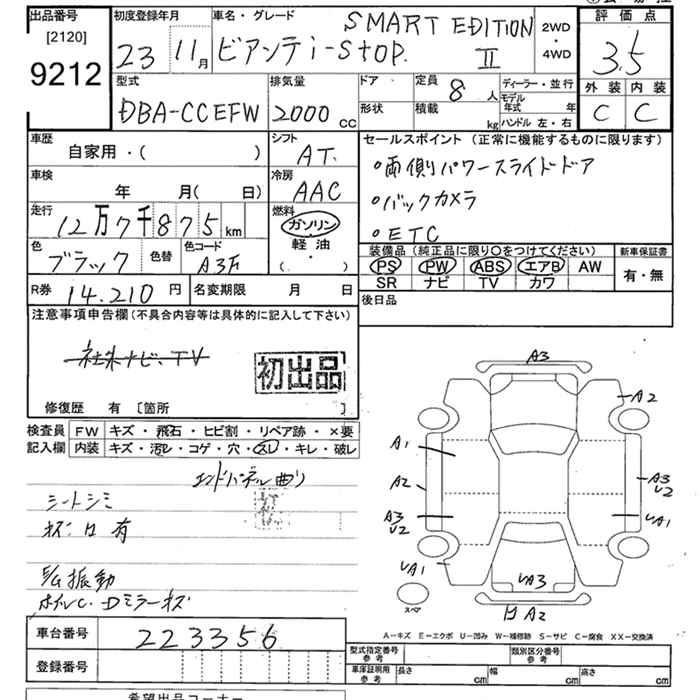 出品番号
[2120]
9212
初度登録年月
23 11月
車名・グレード
SMART EDITION
ビアンテi-stop. II
2WD
・
4WD
評価点
3.5
外装 内装
C C
型式
DBA-CCEFW
排気量
2000 cc
ドア
形状
定員
8 人
積載
kg
ディーラー・並行
モデル年式 年
ハンドル 左・右
車歴
自家用・( )
シフト
AT.
セールスポイント (正常に機能するものに限ります)
・両側パワースライドドア
・バックカメラ
・ETC
車検
年 月( 日)
冷房
AAC
走行
12万7千875km
燃料
ガソリン
軽油
( ・ )
色
ブラック
色替
色コード
A3F
装備品 (純正品に限り〇をつけてください)
PS PW ABS エアB AW
SR ナビ TV カワ
新車保証書
有・無
R券 14.210 円
名変期限 月 日
後日品
注意事項申告欄 (不具合内容等は具体的に記入して下さい)
社外ナビ、TV
初出品
修復歴 有 [箇所 ]
検査員
記入欄
FW キズ・飛石・ヒビ割・リペア跡・×要
内装 キズ・汚レ・コゲ・穴・スレ・キレ・破レ
エンドパネル曲り
シートシミ
有
E/G振動
ホイルC.Dミラーキズ
A3
A2
A1
A2
A3
U2
A3
U2
UA1
UA1
UA3
A2
スペア
A－キズ E－エクボ U－凹み W－補修跡 S－サビ C－腐食 XX－交換済
車台番号 223356
登録番号
型式指定番号
参考
類別区分番号
参考
車庫証明用
参考
長さ cm 幅 cm 高さ cm
希望出品コーナー